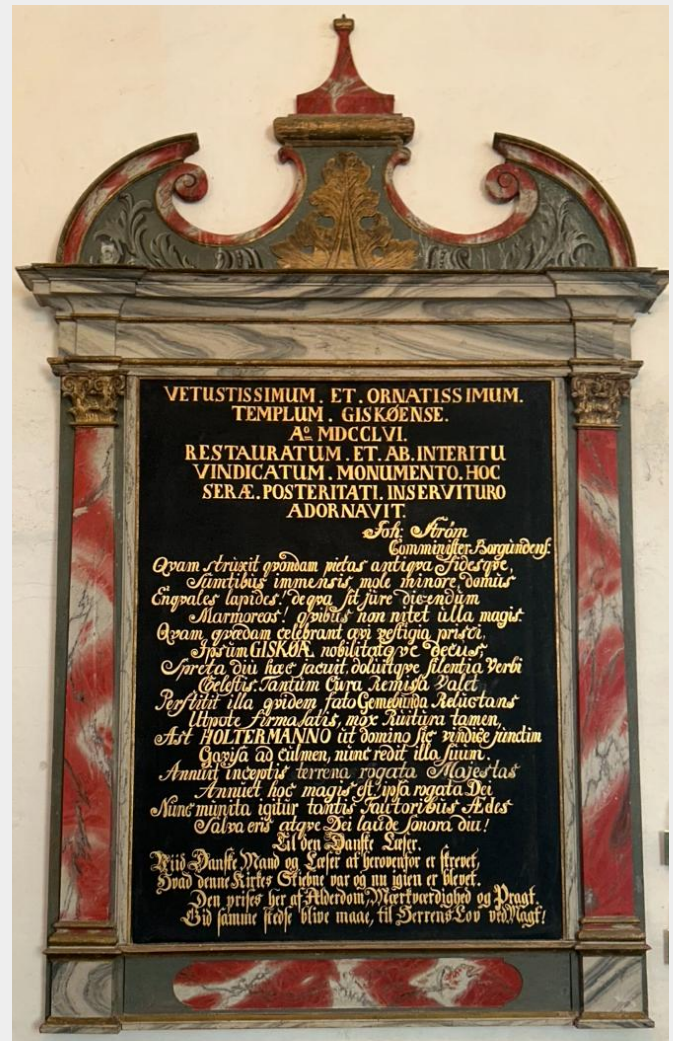 VETUSTISSIMUM. ET. ORNATISSIMUM.
TEMPLUM. GISKØENSE.
Aº MDCCLVI.
RESTAURATUM. ET. AB. INTERITU
VINDICATUM. MONUMENTO. HOC
SERÆ. POSTERITATI. INSERVITURO
ADORNAVIT.
Joh: Strøm
Comminister Borgundens:
Qvam strùxit qvondam pietas antiqva fidesqve,
Sùmtibùs immensis, mole minore, domùs
Enqvales lapides! deqva sit jùre dicendùm
Marmoreos! qvibùs non nitet ùlla magis.
Qvam qvædam celebrant qvi vestigia prisci,
Ipsùm GISKØÆ nobilitatqve decùs,
Spreta diù hæc jacuit, doluitqve silentia Verbi
Coelestis. Tantùm Cùra Remissa Valet
Perstitit illa qvidem fato Gemebùnda Relùctans
Utpote firma satis, mox Rùitùra tamen,
Ast HOLTERMANNO ùt domino sic vindice jùnctim
Gavisa ad cùlmen, nùnc redit illa sùùm.
Annùit inceptis terrena rogata Majestas
Annùet hoc magis est ipsa rogata Dei
Nùnc mùnita igitùr tantis Faùtoribùs Ædes
Salva eris atqve Dei laùde sonora diù!
Til den Danske Læser.
Viid Danske Mand og Læser at herovenfor er skrevet,
Hvad denne Kirkes Skiebne var og nu igien er blevet.
Den prises her af Alderdom, Mærkværdighed og Pragt.
Gid samme stedse blive maae, til Herrens Lov ved Magt!